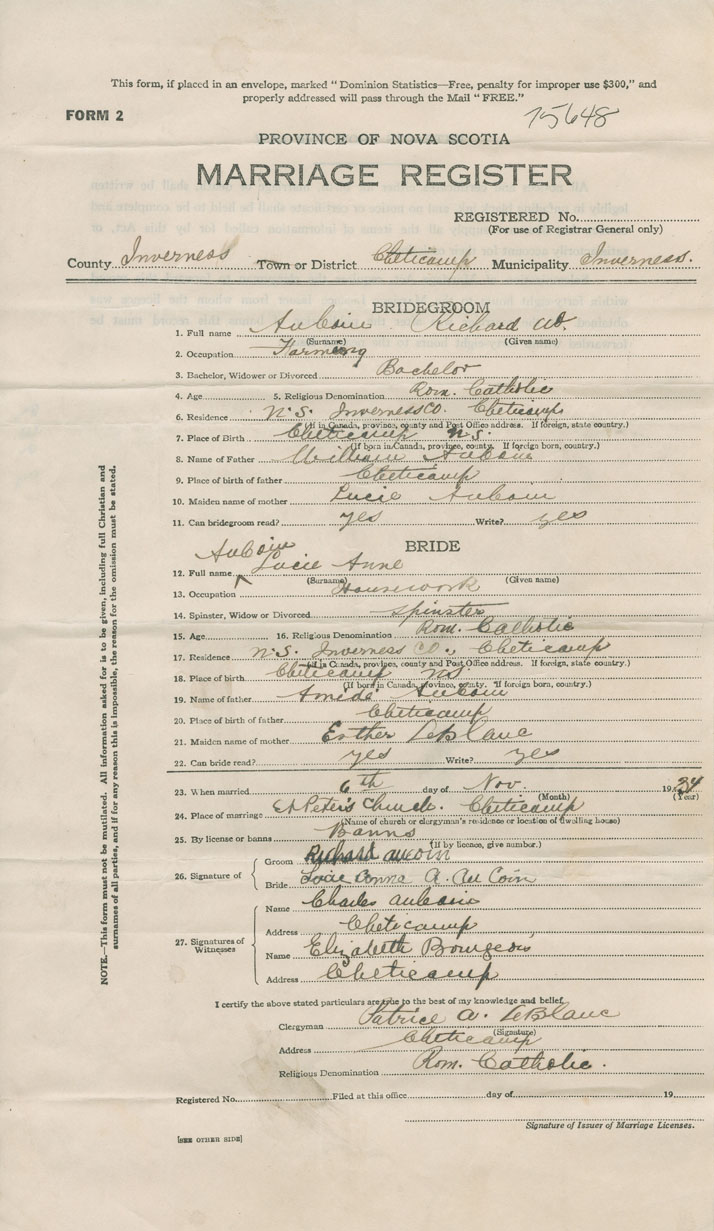 This form, if placed in an envelope, marked "Dominion Statistics—Free, penalty for improper use $300," and
properly addressed will pass through the Mail "FREE."
FORM 2
75648
PROVINCE OF NOVA SCOTIA
MARRIAGE REGISTER
REGISTERED No.
(For use of Registrar General only)
County Inverness Town or District Cheticamp Municipality Inverness.
BRIDEGROOM
1. Full name AuCoin Richard W.
(Surname) (Given name)
2. Occupation Farming
3. Bachelor, Widower or Divorced Bachelor
4. Age 5. Religious Denomination Rom. Catholic
6. Residence N.S. Inverness Co. Cheticamp
(If in Canada, province, county and Post Office address. If foreign, state country.)
7. Place of Birth Cheticamp N.S.
(If born in Canada, province, county. If foreign born, country.)
8. Name of Father William AuCoin
9. Place of birth of father Cheticamp
10. Maiden name of mother Lucie AuCoin
11. Can bridegroom read? yes Write? yes
BRIDE
AuCoin
12. Full name Lucie Anne
(Surname) (Given name)
13. Occupation Housework
14. Spinster, Widow or Divorced Spinster
15. Age 16. Religious Denomination Rom. Catholic
17. Residence N.S. Inverness Co., Cheticamp
(If in Canada, province, county and Post Office address. If foreign, state country.)
18. Place of birth Cheticamp NS.
(If born in Canada, province, county. If foreign born, country.)
19. Name of father AuCoin
20. Place of birth of father Cheticamp
21. Maiden name of mother Esther LeBlanc
22. Can bride read? yes Write? yes
23. When married 6th day of Nov. 1934
(Month) (Year)
24. Place of marriage St Peter's Church. Cheticamp
(Name of church or clergyman's residence or location of dwelling house)
25. By license or banns Banns
(If by licence, give number.)
26. Signature of
Groom Richard aucoin
Bride Lucie Anna A. Au Coin
27. Signatures of Witnesses
Name Charles AuCoin
Address Cheticamp
Name Elizabeth Bourgeois
Address Cheticamp
I certify the above stated particulars are true to the best of my knowledge and belief.
Clergyman Patrice A. LeBlanc
(Signature)
Address Cheticamp
Religious Denomination Rom. Catholic.
Registered No. Filed at this office day of 19
Signature of Issuer of Marriage Licenses.
[SEE OTHER SIDE]
NOTE.—This form must not be mutilated. All information asked for is to be given, including full Christian and
surnames of all parties, and if for any reason this is impossible, the reason for the omission must be stated.